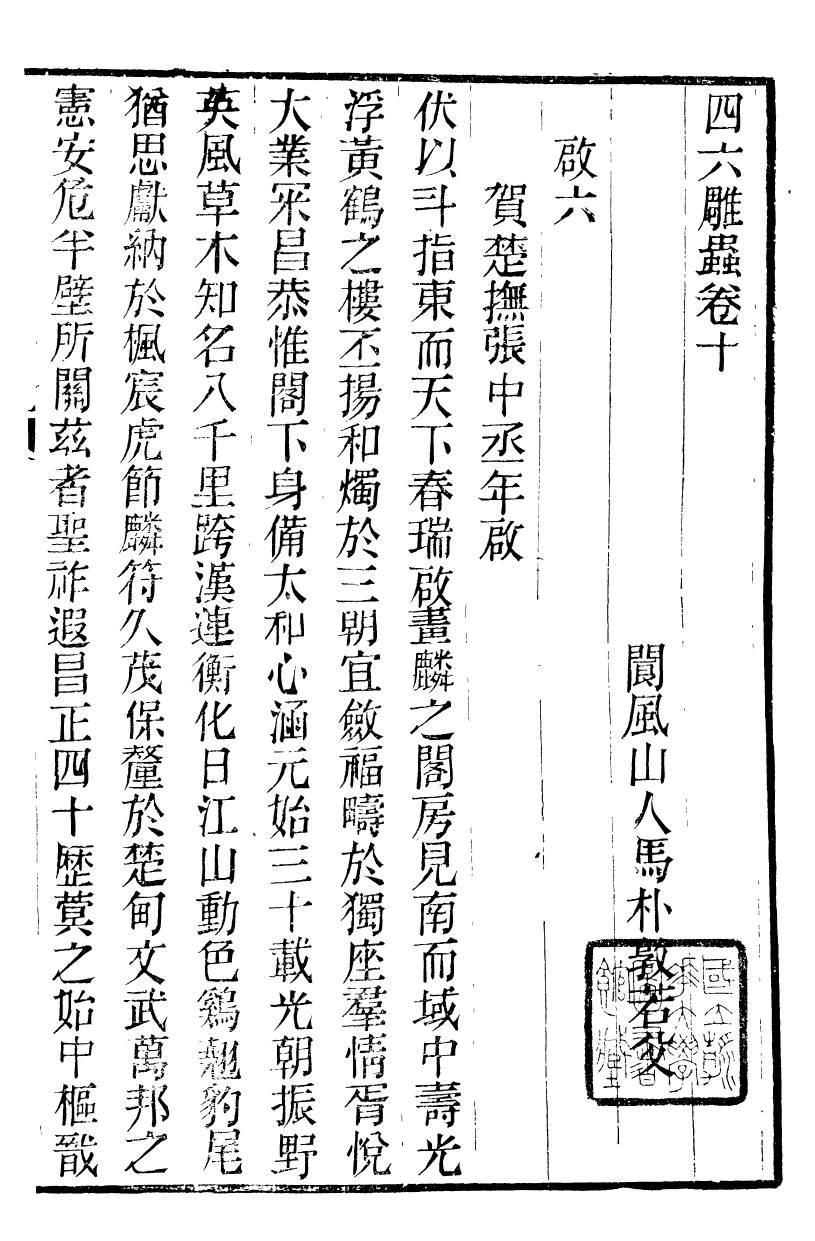 四六雕蟲卷十
閬風山人馬朴敦若父
啟六
賀楚撫張中丞年啟
伏以斗指東而天下春瑞啟畫麟之閣房見南而域中壽光
浮黃鶴之樓丕揚和燭於三朝宜斂福疇於獨座羣情胥悅
大業冞昌恭惟閣下身備太和心涵元始三十載光朝振野
英風草木知名八千里跨漢連衡化日江山動色鷄翹豹尾
猶思獻納於楓宸虎節麟符久茂保釐於楚甸文武萬邦之
憲安危半壁所關茲者聖祚遐昌正四十歷蓂之始中樞戩